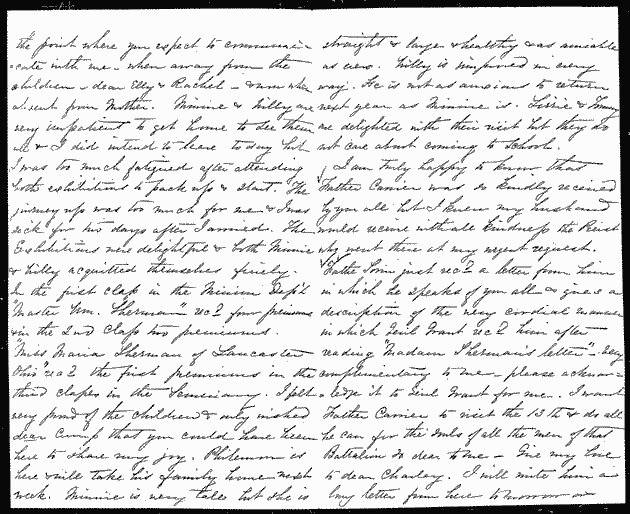 the point where you expect to communi-
cate with me - when away from the
children - dear Elly & Rachel - & now when
absent from Mother. Minnie & Willy are
very impatient to get home to see them
all & I did intend to leave to day but
I was too much fatigued after attending
both exhibitions to pack up & start. The
journey up was too much for me & I was
sick for two days after I arrived. The
Exhibitions were delightful & both Minnie
& Willy acquitted themselves finely.
In the first class in the Minim Dep't
"Master Wm. Sherman" rec'd four premiums
& in the 2nd class two premiums.
"Miss Maria Sherman of Lancaster
Ohio" rec'd the first premiums in the
third classes in the Seminary. I felt
very proud of the children & only wished
dear Cump that you could have been
here to share my joy. Philemon is
here & will take his family home next
week. Minnie is very tall but she is
straight & large & healthy & as amiable
as ever. Willy is improved in every
way. He is not as anxious to return
next year as Minnie is. Lizzie & Tommy
are delighted with their visit but they do
not care about coming to school.
I am truly happy to know that
Father Carrier was so kindly received
by you all but I knew my husband
would receive with all kindness the Priest
who went there at my urgent request.
Father Sorin just rec'd a letter from him
in which he speaks of you all & gives a
description of the very cordial manner
in which Genl Grant rec'd him after
reading "Madam Sherman's letter" - very
complimentary to me - please acknow-
ledge it to Genl Grant for me. I want
Father Carrier to visit the 13th & do all
he can for the souls of all the men of that
Battalion so dear to me - Give my love
to dear Charley. I will write him a
long letter from here tomorrow or